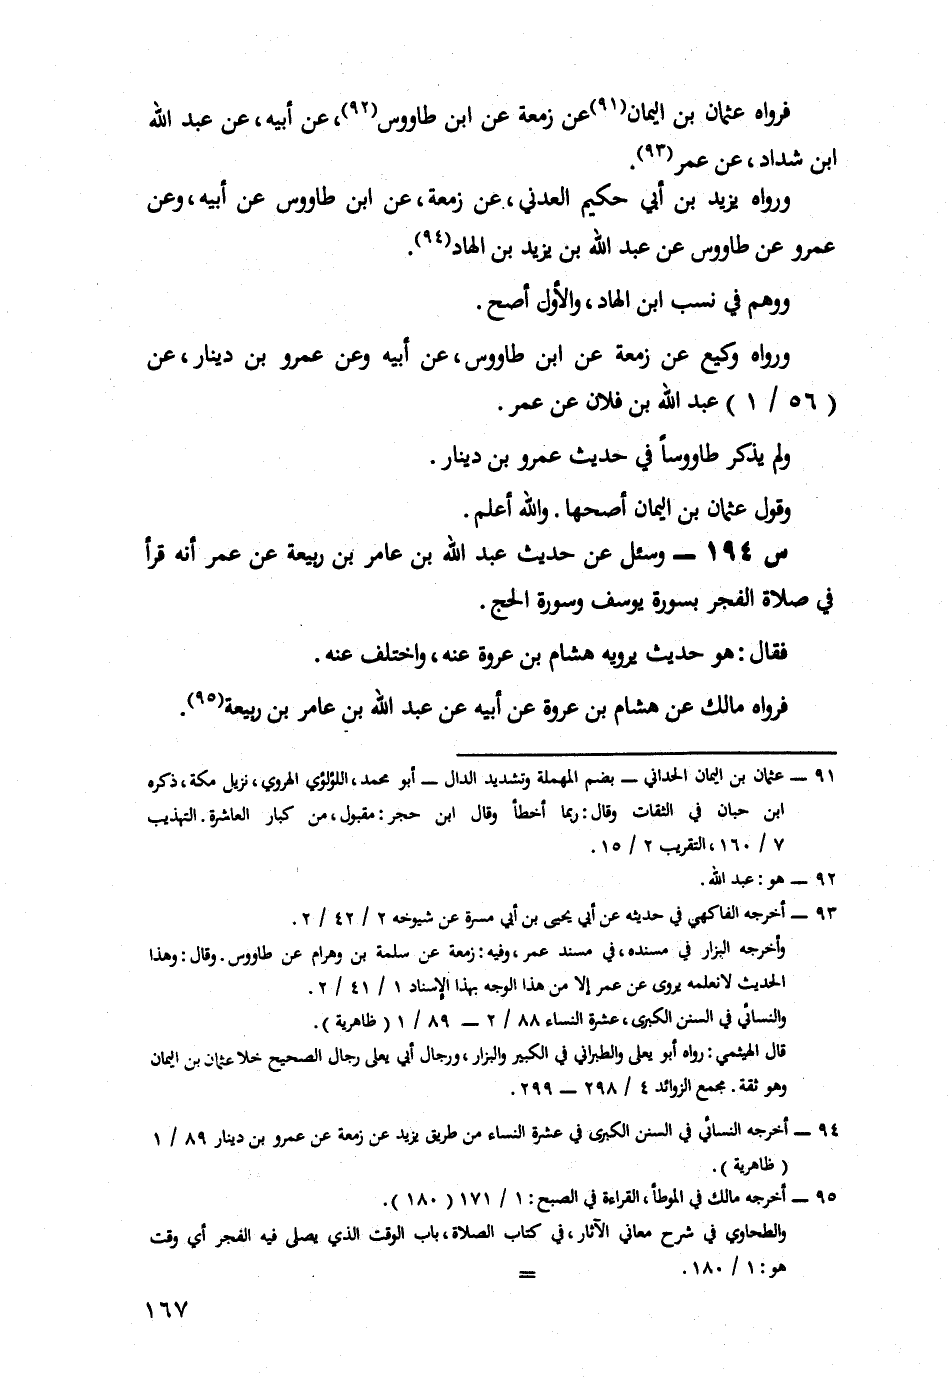 فرواه عثمان بن اليمان(٩١)عن زمعة عن ابن طاووس(٩٢)، عن أبيه، عن عبد الله
ابن شداد، عن عمر(٩٣).
ورواه يزيد بن أبي حكيم العدني، عن زمعة، عن ابن طاووس عن أبيه، وعن
عمرو عن طاووس عن عبد الله بن يزيد بن الهاد(٩٤).
ووهم في نسب ابن الهاد، والأول أصح.
ورواه وكيع عن زمعة عن ابن طاووس، عن أبيه وعن عمرو بن دينار، عن
( ٥٦ / ١ ) عبد الله بن فلان عن عمر.
ولم يذكر طاووساً في حديث عمرو بن دينار.
وقول عثمان بن اليمان أصحها. والله أعلم.
س ١٩٤ — وسئل عن حديث عبد الله بن عامر بن ربيعة عن عمر أنه قرأ
في صلاة الفجر بسورة يوسف وسورة الحج.
فقال: هو حديث يرويه هشام بن عروة عنه، واختلف عنه.
فرواه مالك عن هشام بن عروة عن أبيه عن عبد الله بن عامر بن ربيعة(٩٥).
٩١ — عثمان بن اليمان الحداني — بضم المهملة وتشديد الدال — أبو محمد، اللؤلؤي الهروي، نزيل مكة، ذكره
ابن حبان في الثقات وقال: ربما أخطأ وقال ابن حجر: مقبول، من كبار العاشرة. التهذيب
٧ / ١٦٠، التقريب ٢ / ١٥.
٩٢ — هو: عبد الله.
٩٣ — أخرجه الفاكهي في حديثه عن أبي يحيى بن أبي مسرة عن شيوخه ٢ / ٤٢ / ٢.
وأخرجه البزار في مسنده، في مسند عمر، وفيه: زمعة عن سلمة بن وهرام عن طاووس. وقال: وهذا
الحديث لانعلمه يروى عن عمر إلا من هذا الوجه بهذا الإسناد ١ / ٤١ / ٢.
والنسائي في السنن الكبرى، عشرة النساء ٨٨ / ٢ — ٨٩ / ١ ( ظاهرية ).
قال الهيثمي: رواه أبو يعلى والطبراني في الكبير والبزار، ورجال أبي يعلى رجال الصحيح خلا عثمان بن اليمان
وهو ثقة. مجمع الزوائد ٤ / ٢٩٨ — ٢٩٩.
٩٤ — أخرجه النسائي في السنن الكبرى في عشرة النساء من طريق يزيد عن زمعة عن عمرو بن دينار ٨٩ / ١
( ظاهرية ).
٩٥ — أخرجه مالك في الموطأ، القراءة في الصبح: ١ / ١٧١ ( ١٨٠ ).
والطحاوي في شرح معاني الآثار، في كتاب الصلاة، باب الوقت الذي يصلى فيه الفجر أي وقت
هو: ١ / ١٨٠.
=
١٦٧